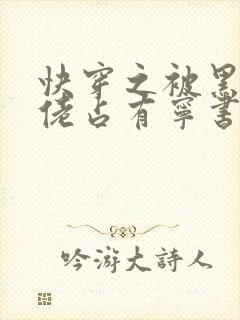 快穿之被黑
佬占有寧書
吟游大詩人